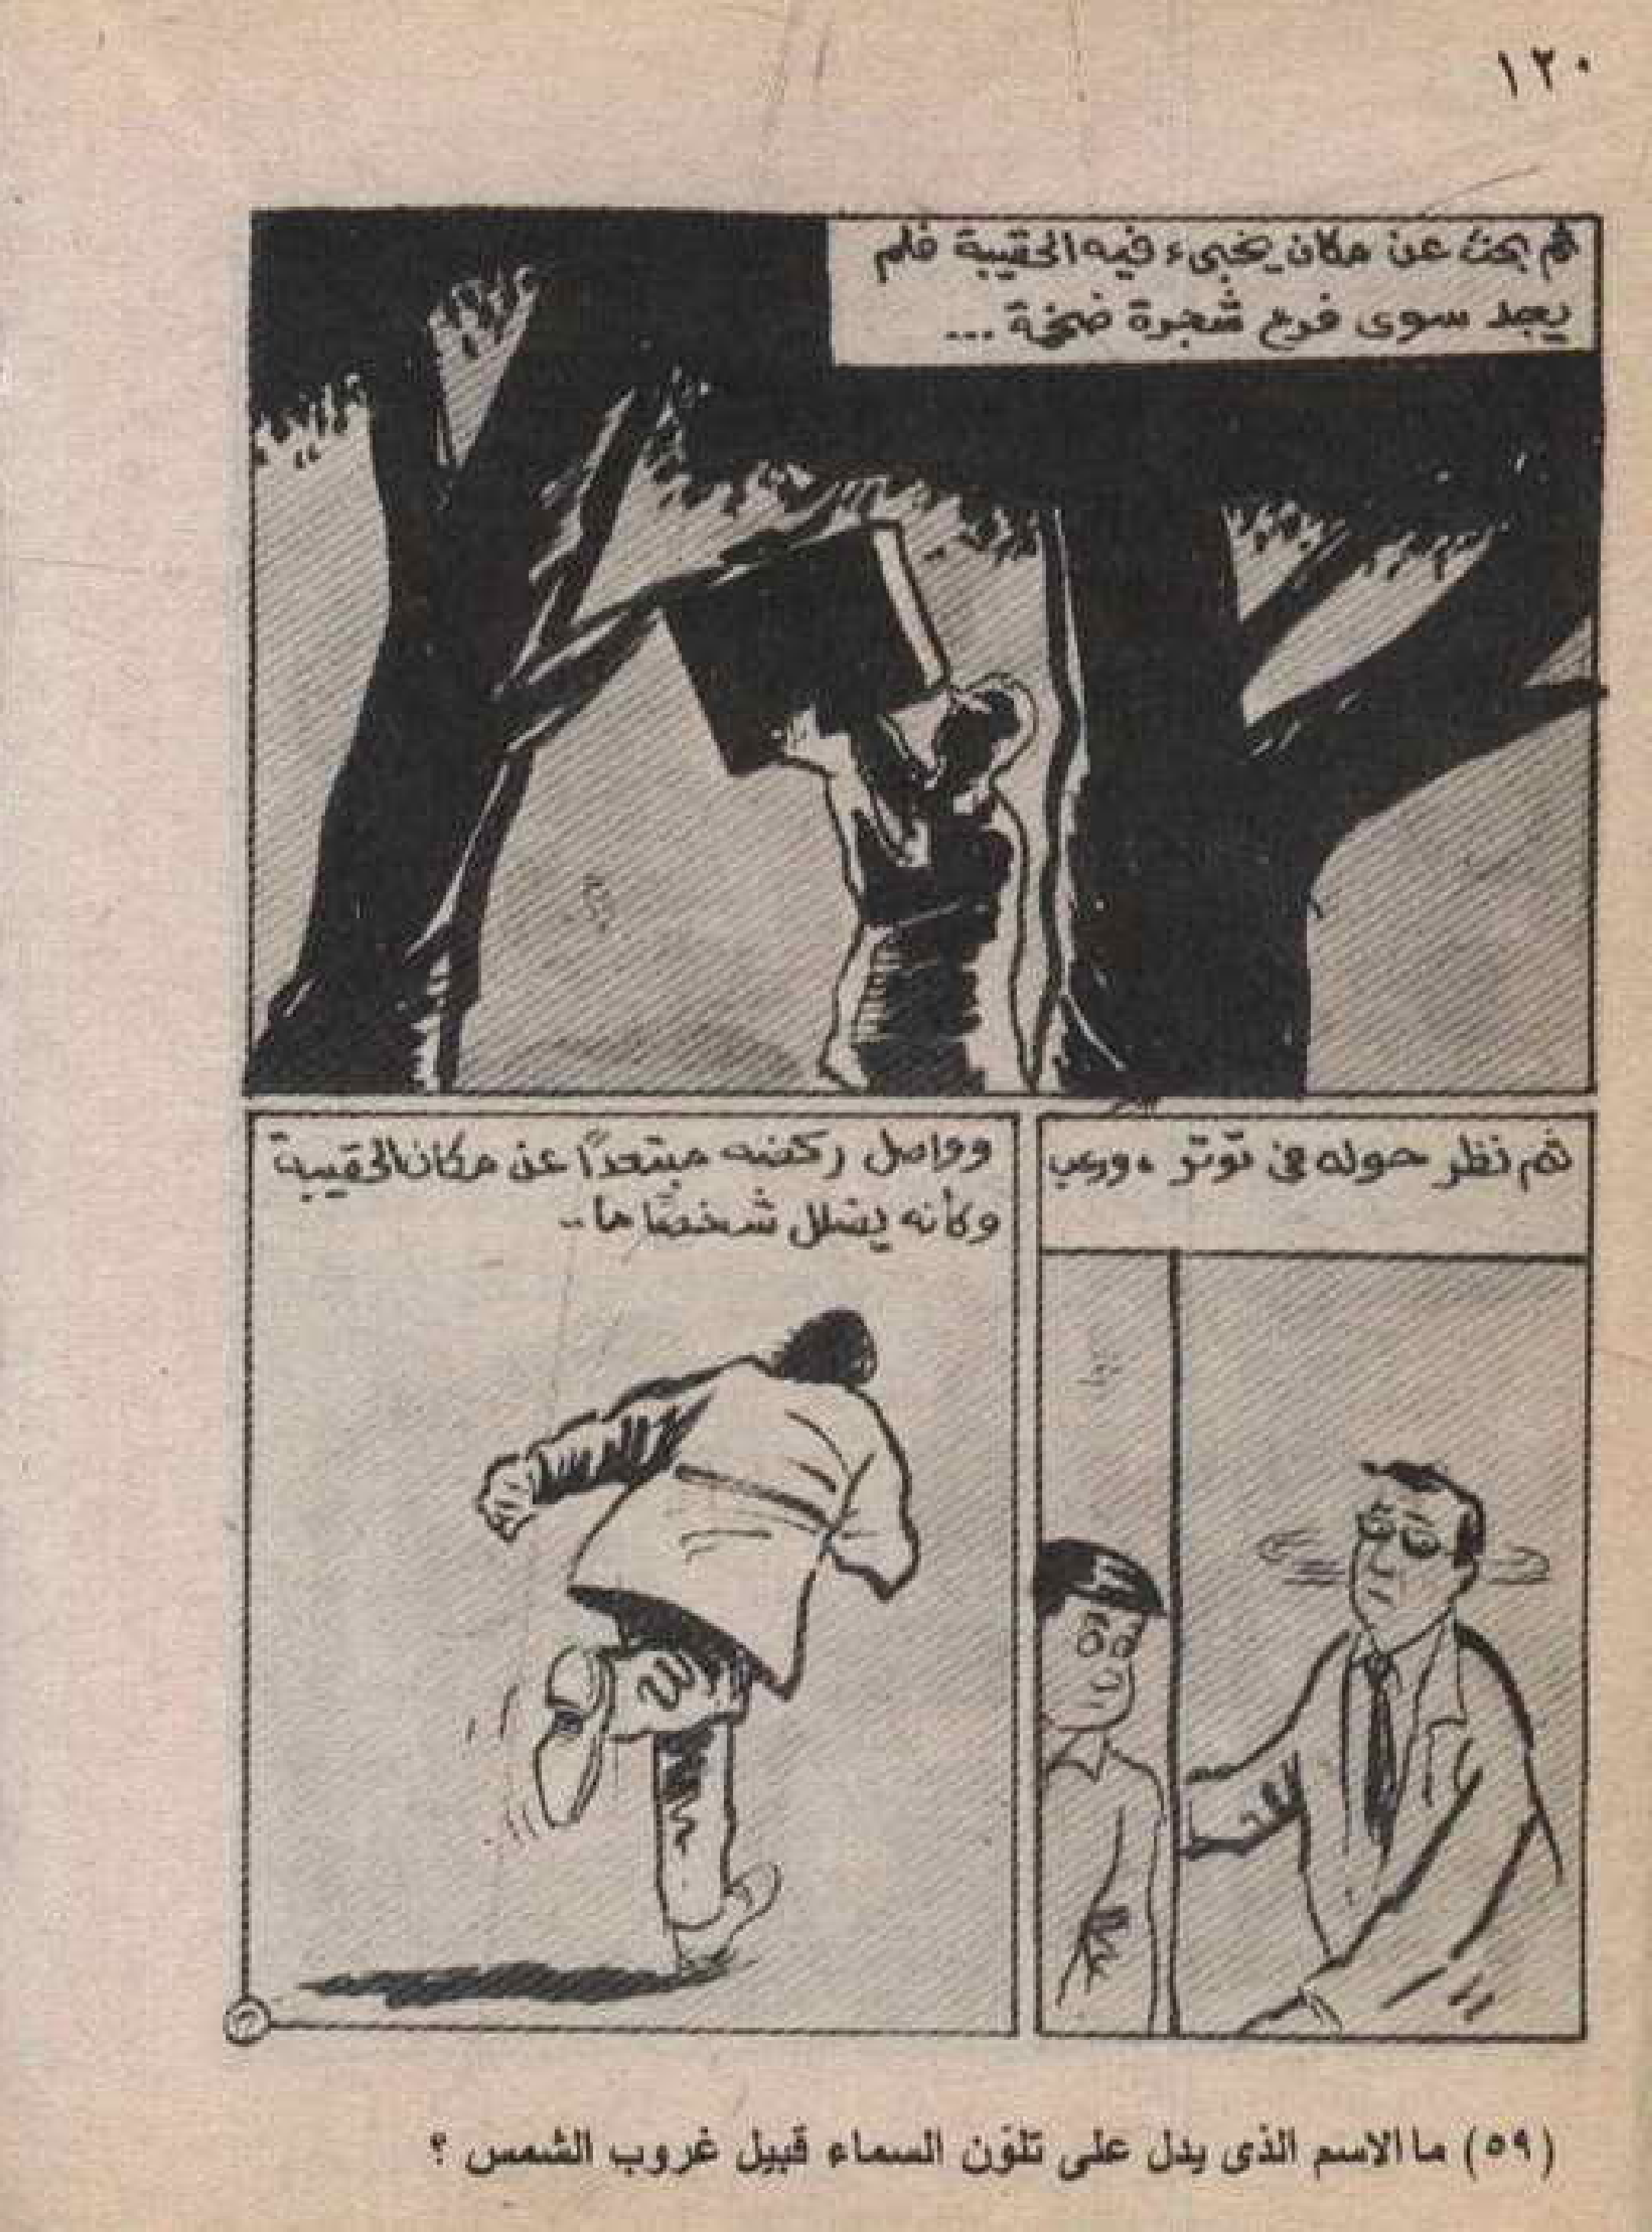 ١٢٠
ثم بحث عن مكان يخبىء فيه الحقيبة فلم
يجد سوى فرع شجرة ضخمة ...
ثم نظر حوله فى توتر ورعب
وواصل ركضه مبتعدًا عن مكان الحقيبة
وكأنه يضلل شخصًا ما..
(٥٩) ما الاسم الذى يدل على تلوّن السماء قبيل غروب الشمس ؟